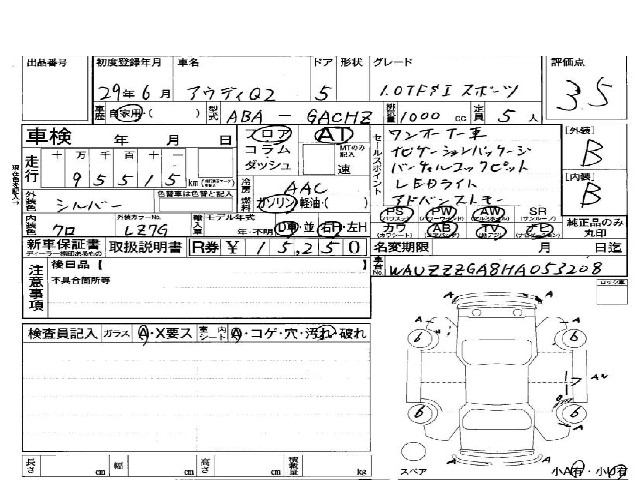 出品番号 初度登録年月 車名 ドア 形状 グレード 評価点
29年6月 アウディQ2 5 1.0TFSI スポーツ 3.5
車歴 自家用・( ) 型式 ABA-GACHZ 排気量 1000 cc 定員 5 人
車検 年 月 日 フロア AT セールスポイント ワンオーナー車 [外装]
コラム MTのみ記入 ナビゲーションパッケージ B
走行 十 万 千 百 十 ダッシュ 速 バーチャルコックピット
95515 km 冷房 AAC LEDライト [内装]
外装色 シルバー 色替車は色替と記入 燃料 ガソリン・軽油・( ) アドバンストキー B
内装色 クロ 外装カラーNo. LZ7G 輸入車 モデル年式 年・不明 D車・並 右H・左H
PS PW AW SR
カワ AB TV ナビ 純正品のみ丸印
新車保証書 取扱説明書 R券 ¥ 15,250 名変期限 月 日迄
ディーラー捺印あるもの
車台No. WAUZZZGA8HA053208
注意事項 後日品【
不具合箇所等 ロック車
検査員記入 ガラス A・X要ス 室内シート A・コゲ・穴・汚れ・破れ
A A
A A
6 6
A2
6 6
A A
A
スペア 小A有・小U有
長さ cm 幅 cm 高さ cm 積載量 kg